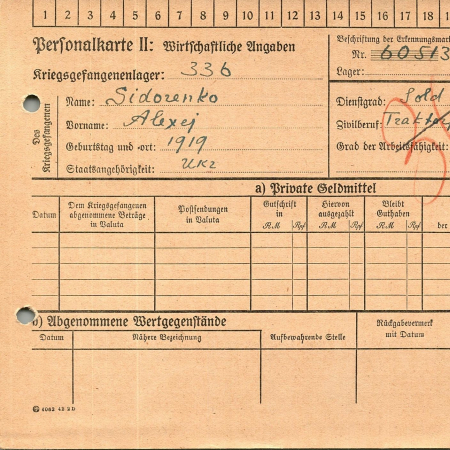 1 2 3 4 5 6 7 8 9 10 11 12 13 14 15 16 17 18
Personalkarte II: Wirtschaftliche Angaben
Beschriftung der Erkennungsmark
Nr. 60513
Kriegsgefangenenlager: 336
Lager:
Des Kriegsgefangenen
Name: Sidorenko
Vorname: Alexej
Geburtstag und -ort: 1919
Staatsangehörigkeit: Ukr
Dienstgrad: Sold
Zivilberuf: Traktor
Grad der Arbeitsfähigkeit:
a) Private Geldmittel
Datum
Dem Kriegsgefangenen abgenommene Beträge in Valuta
Postsendungen in Valuta
Gutschrift in
RM Rpf
Hiervon ausgezahlt
RM Rpf
Bleibt Guthaben
RM Rpf
der
b) Abgenommene Wertgegenstände
Datum
Nähere Bezeichnung
Aufbewahrende Stelle
Rückgabevermerk mit Datum